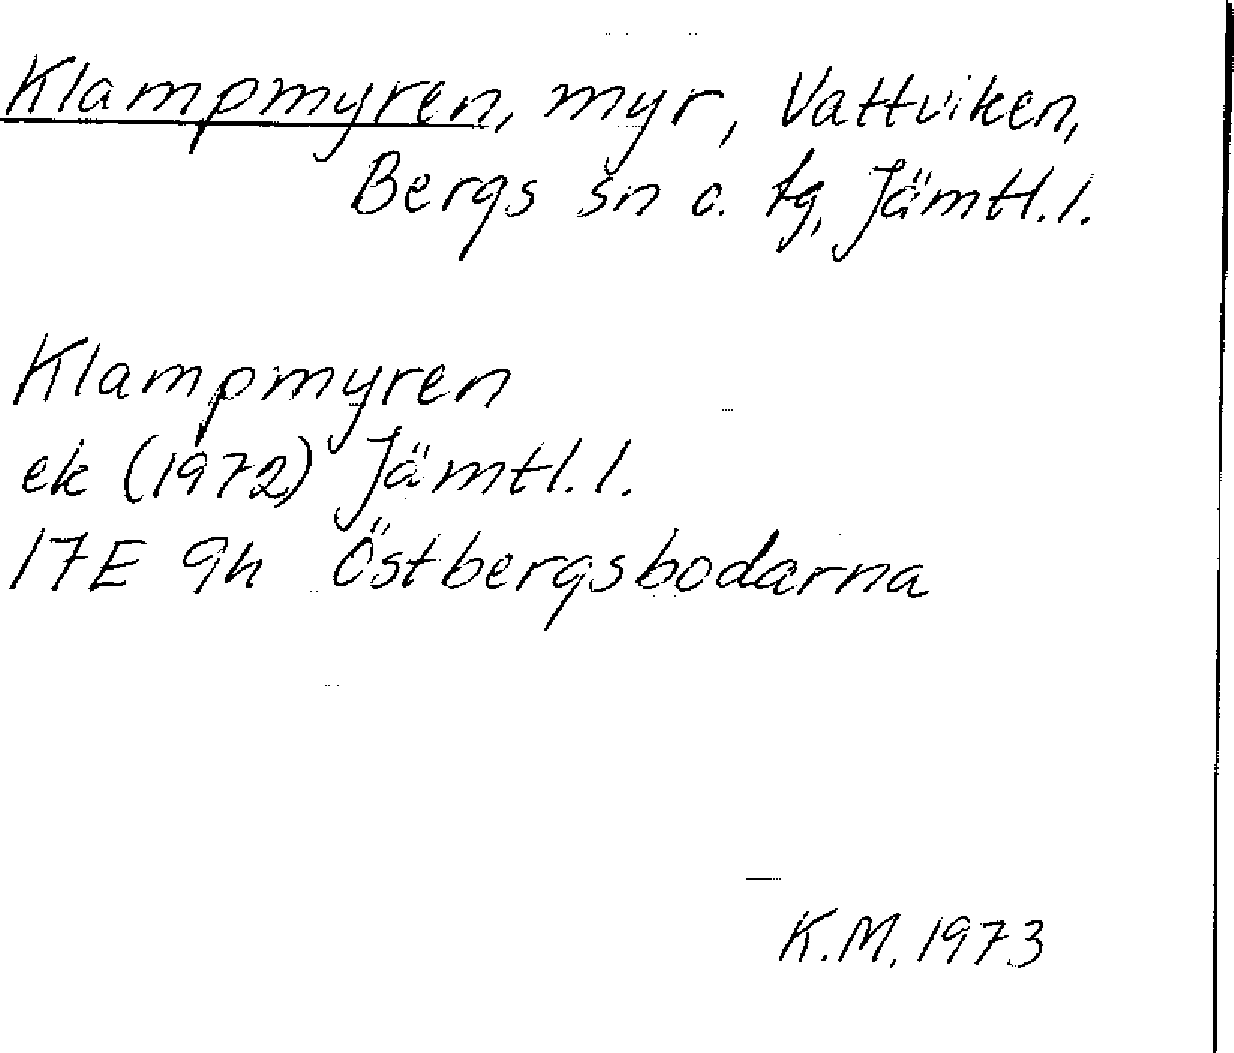 Klampmyren, myr, Vattviken,
Bergs sn o. tg, Jämtl. l.
Klampmyren
ek (1972) Jämtl. l.
17E 9h Östbergsbodarna
K.M. 1973